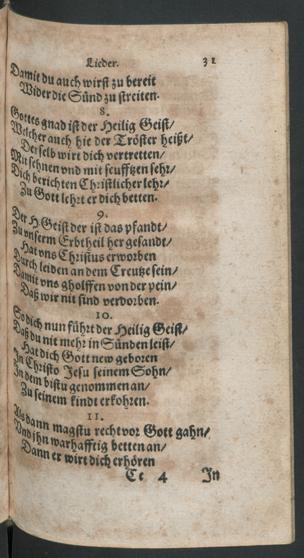 Lieder. 31
Damit du auch wirst zu bereit
Wider die Sünd zu streiten.
8.
Gottes gnad ist der Heilig Geist/
Welcher auch hie der Tröster heißt/
Derselb wirt dich vertretten/
Mit sehnen vnd mit seufftzen sehr/
Dich berichten Christlicher lehr/
Zu Gott lehrt er dich betten.
9.
Der H. Geist der ist das pfandt/
Zu vnserm Erbtheil her gesandt/
Hat vns Christus erworben
Durch leiden an dem Creutze sein/
Damit vns gholffen von der pein/
Daß wir nit sind verdorben.
10.
So dich nun führt der Heilig Geist/
Daß du nit mehr in Sünden leist/
Hat dich Gott new geboren
In Christo Jesu seinem Sohn/
In dem bistu genommen an/
Zu seinem kindt erkohren.
11.
Als dann magstu recht vor Gott gahn/
Vnd jhn warhafftig betten an/
Dann er wirt dich erhören
Cc 4 In